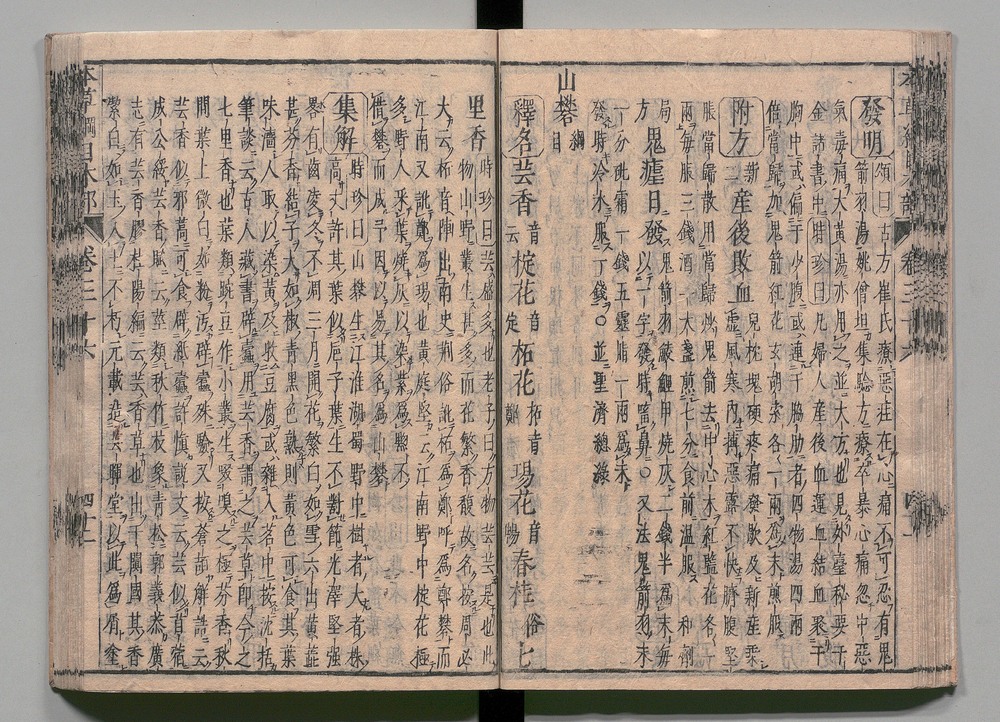 發明 頌曰古方崔氏療惡疰在心痛不可忍有鬼
箭羽湯姚僧坦集驗方療卒暴心痛忽中惡
氣毒痛大黃湯亦用之並大方也見外臺秘要千
金諸書中時珍曰凡婦人產後血運血結血聚于
胸中或偏于少腹或連于脇肋者四物湯四兩
倍當歸加鬼箭紅花玄胡索各一兩爲末煎服
附方 新二產後敗血兒枕塊硬疼痛發歇及新產乘
虛風寒內搏惡露不快臍腹堅
脹當歸散用當歸炒鬼箭去中心木紅藍花各一
兩每服三錢酒一大盞煎七分食前溫服和劑
局方 鬼瘧日發 鬼箭羽鯪鯉甲燒灰二錢半爲末每
以一字發時㗜鼻○又法鬼箭羽末
一分砒霜一錢五靈脂一兩爲末
發時冷水服一錢○並聖濟總錄
山礬 綱目
釋名 芸香音云 椗花音定 柘花柘音鄭 瑒花音暢 春桂俗 七
里香 時珍曰芸盛多也老子曰萬物芸芸是也此
物山野叢生甚多而花繁香馥故名按周必
大云柘音陣出南史荆俗訛柘爲鄭呼爲鄭礬而
江南又訛鄭爲瑒也黃庭堅云江南野中椗花極
多野人采葉燒灰以染紫爲黝不
借礬而成予因以易其名爲山礬
集解 時珍曰山礬生江淮湖蜀野中樹者大者株
高丈許其葉似巵子葉生不對節光澤堅強
畧有齒凌冬不凋三月開花繁白如雪六出黃蕋
甚芬香結子大如椒青黑色熟則黃色可食其葉
味濇人取以染黃及收豆腐或雜入茗中按沈括
筆談云古人藏書辟蠹用芸香謂之芸草即今之
七里香也葉類豌豆作小叢生啜嗅之極芬香秋
間葉上微白如粉汚辟蠹殊驗又按蒼頡解詁云
芸香似邪蒿可食辟紙蠹許愼說文云芸似苜蓿
成公綏芸香賦云莖類秋竹枝象青松郭義恭廣
志有芸香膠杜陽編云芸香草也出于闐國其香
潔白如玉入土不朽元載造芸暉堂以此爲屑塗
本草綱目木部 卷三十六 四十一